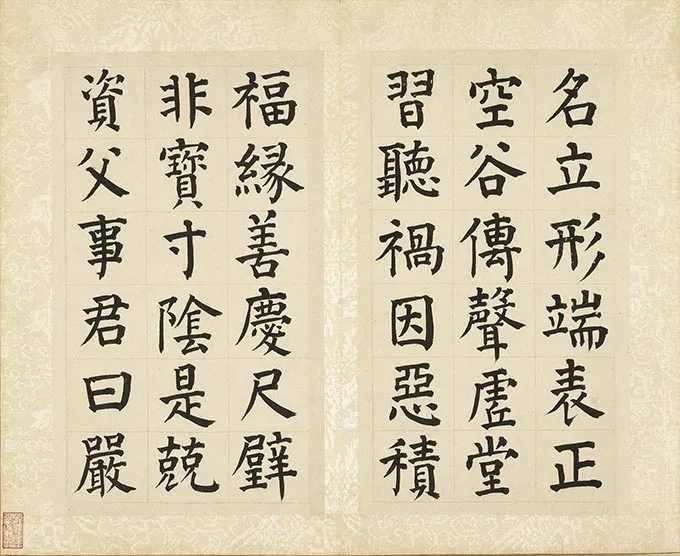 名立形端表正
空谷傳聲虛堂
習聽禍因惡積
福緣善慶尺璧
非寶寸陰是競
資父事君曰嚴